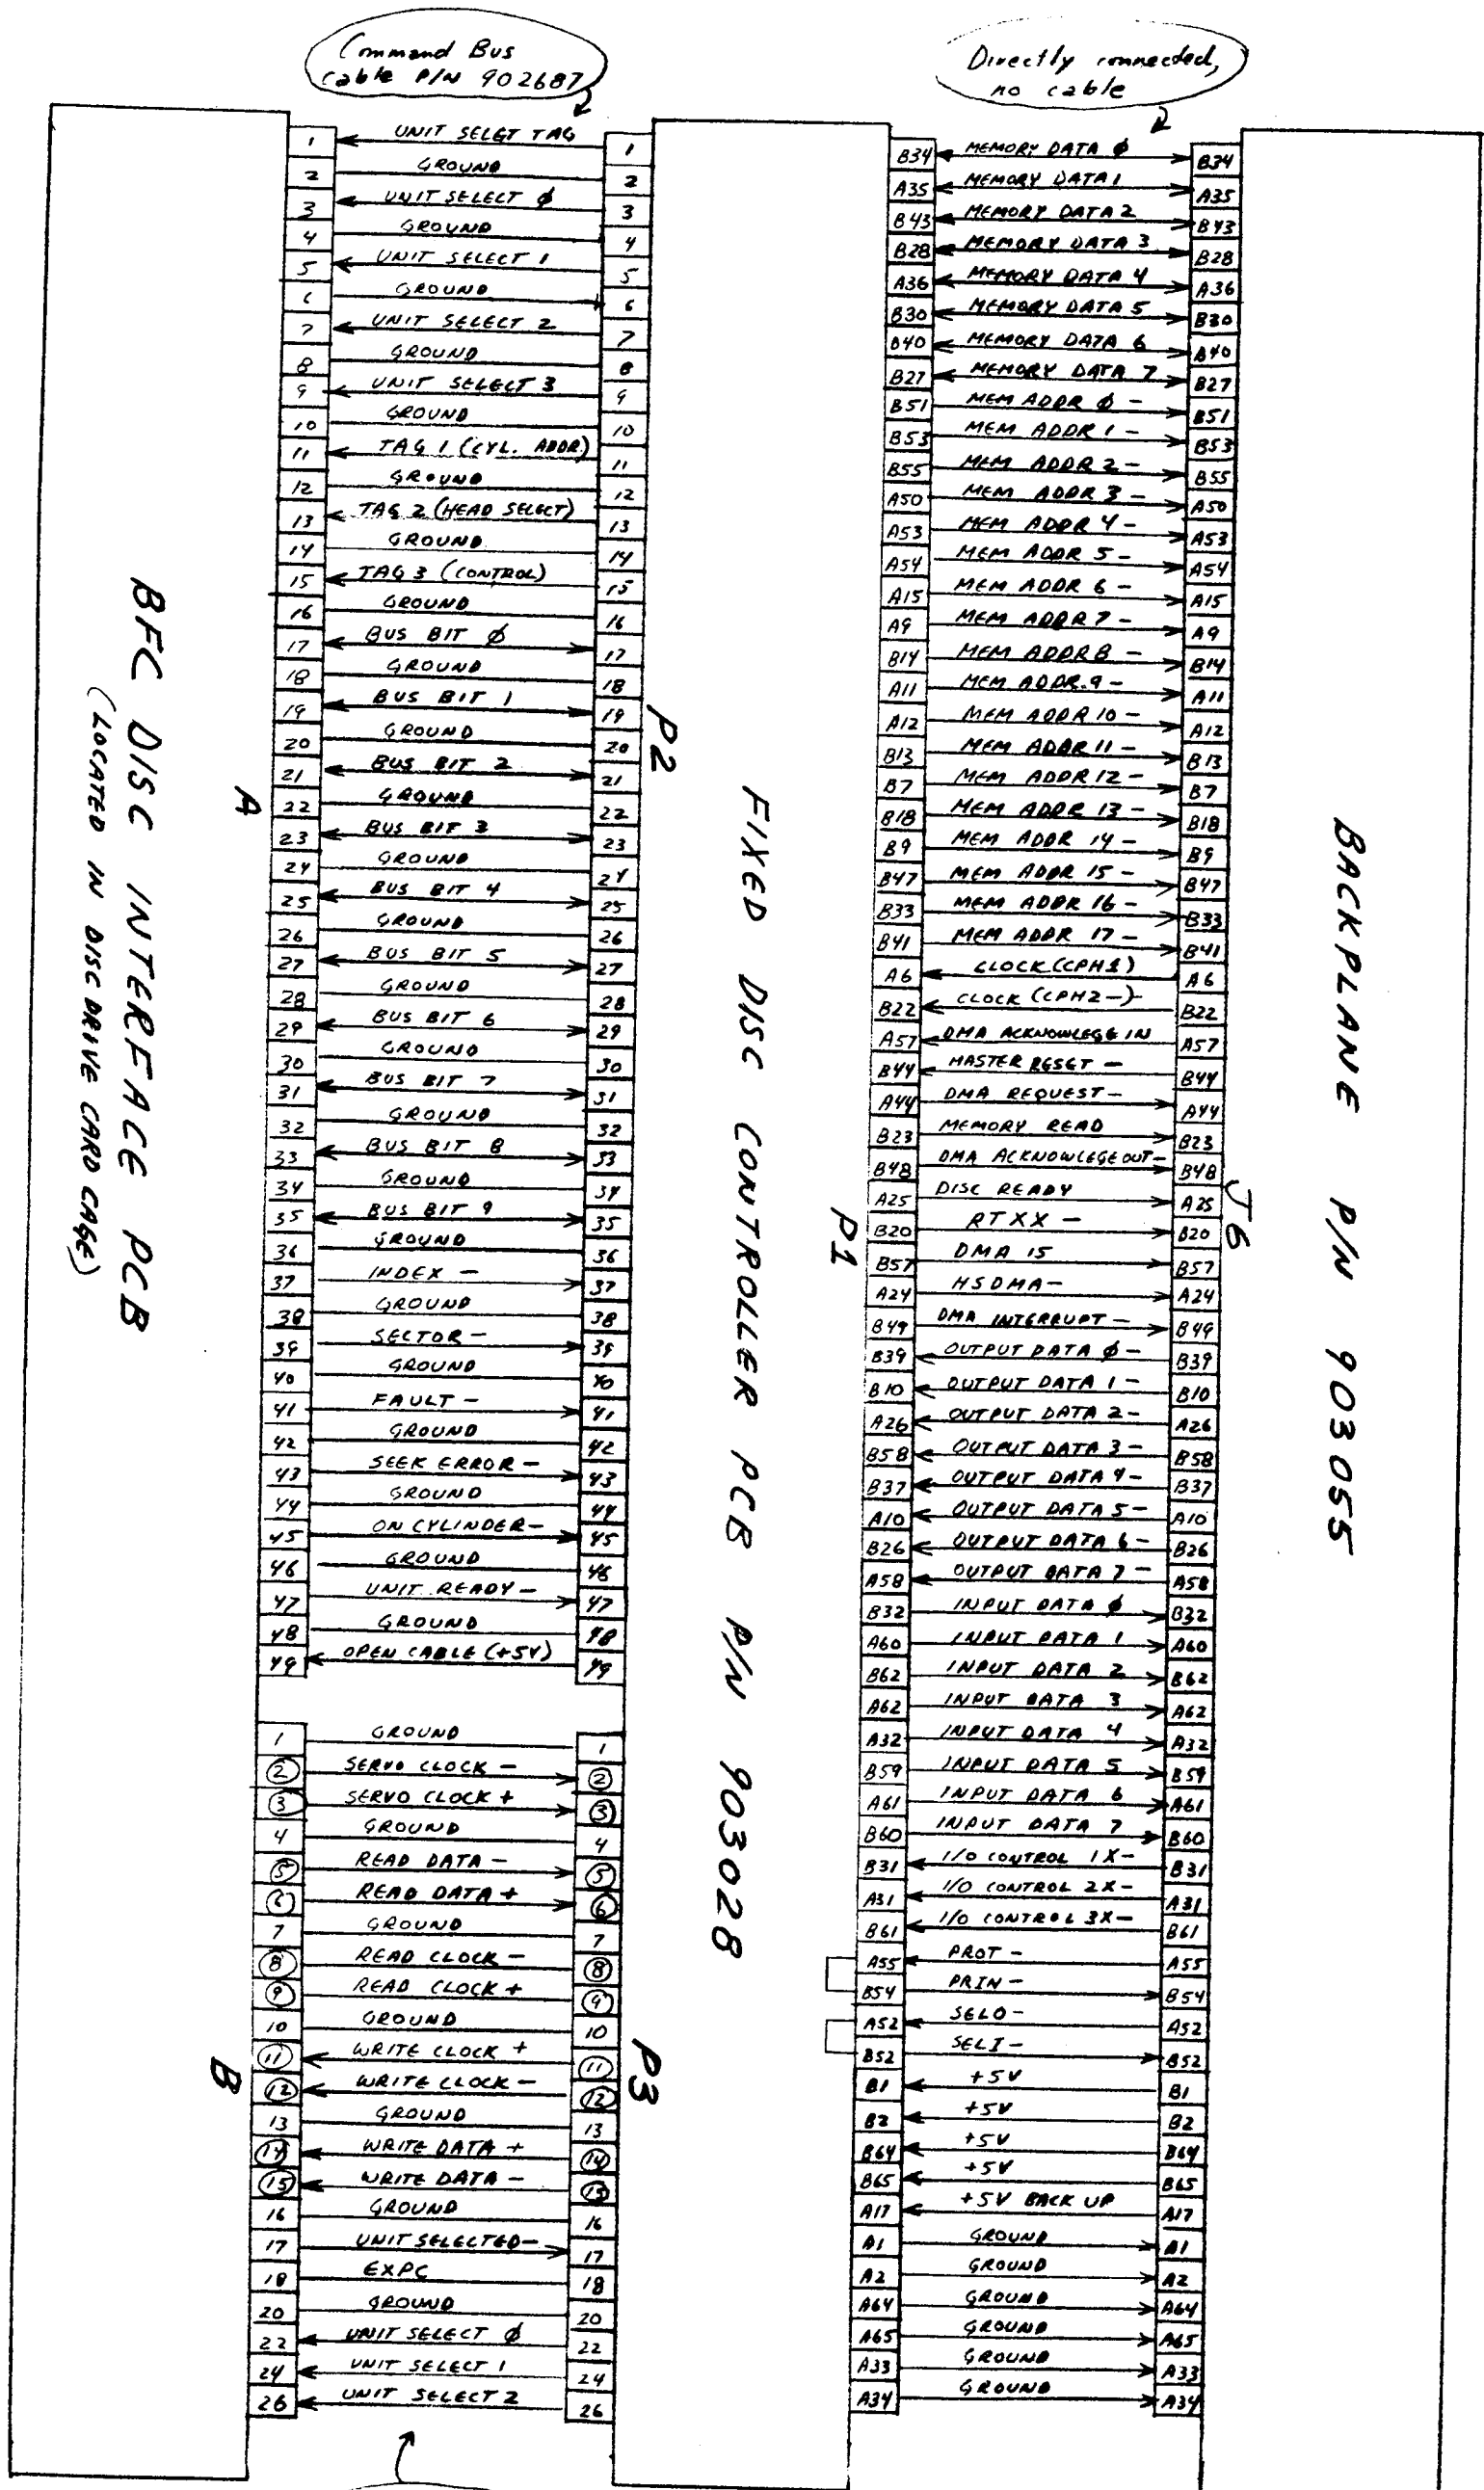 Command Bus
cable P/N 902687
Directly connected,
no cable
1 UNIT SELECT TAG 1
2 GROUND 2
3 UNIT SELECT Ø 3
4 GROUND 4
5 UNIT SELECT 1 5
6 GROUND 6
7 UNIT SELECT 2 7
8 GROUND 8
9 UNIT SELECT 3 9
10 GROUND 10
11 TAG 1 (CYL. ADDR) 11
12 GROUND 12
13 TAG 2 (HEAD SELECT) 13
14 GROUND 14
15 TAG 3 (CONTROL) 15
16 GROUND 16
17 BUS BIT Ø 17
18 GROUND 18
19 BUS BIT 1 19
20 GROUND 20
21 BUS BIT 2 21
22 GROUND 22
23 BUS BIT 3 23
24 GROUND 24
25 BUS BIT 4 25
26 GROUND 26
27 BUS BIT 5 27
28 GROUND 28
29 BUS BIT 6 29
30 GROUND 30
31 BUS BIT 7 31
32 GROUND 32
33 BUS BIT 8 33
34 GROUND 34
35 BUS BIT 9 35
36 GROUND 36
37 INDEX - 37
38 GROUND 38
39 SECTOR - 39
40 GROUND 40
41 FAULT - 41
42 GROUND 42
43 SEEK ERROR - 43
44 GROUND 44
45 ON CYLINDER - 45
46 GROUND 46
47 UNIT READY - 47
48 GROUND 48
49 OPEN CABLE (+5V) 49
1 GROUND 1
2 SERVO CLOCK - 2
3 SERVO CLOCK + 3
4 GROUND 4
5 READ DATA - 5
6 READ DATA + 6
7 GROUND 7
8 READ CLOCK - 8
9 READ CLOCK + 9
10 GROUND 10
11 WRITE CLOCK + 11
12 WRITE CLOCK - 12
13 GROUND 13
14 WRITE DATA + 14
15 WRITE DATA - 15
16 GROUND 16
17 UNIT SELECTED - 17
18 EXPC 18
20 GROUND 20
22 UNIT SELECT Ø 22
24 UNIT SELECT 1 24
26 UNIT SELECT 2 26
B34 MEMORY DATA Ø B34
A35 MEMORY DATA 1 A35
B43 MEMORY DATA 2 B43
B28 MEMORY DATA 3 B28
A36 MEMORY DATA 4 A36
B30 MEMORY DATA 5 B30
B40 MEMORY DATA 6 B40
B27 MEMORY DATA 7 B27
B51 MEM ADDR Ø - B51
B53 MEM ADDR 1 - B53
B55 MEM ADDR 2 - B55
A50 MEM ADDR 3 - A50
A53 MEM ADDR 4 - A53
A54 MEM ADDR 5 - A54
A15 MEM ADDR 6 - A15
A9 MEM ADDR 7 - A9
B14 MEM ADDR 8 - B14
A11 MEM ADDR. 9 - A11
A12 MEM ADDR 10 - A12
B13 MEM ADDR 11 - B13
B7 MEM ADDR 12 - B7
B18 MEM ADDR 13 - B18
B9 MEM ADDR 14 - B9
B47 MEM ADDR 15 - B47
B33 MEM ADDR 16 - B33
B41 MEM ADDR 17 - B41
A6 CLOCK (CPH1) A6
B22 CLOCK (CPH2-) B22
A57 DMA ACKNOWLEGE IN A57
B44 MASTER RESET - B44
A44 DMA REQUEST - A44
B23 MEMORY READ B23
B48 DMA ACKNOWLEGE OUT - B48
A25 DISC READY A25
B20 RTXX - B20
B57 DMA 15 B57
A24 HSDMA - A24
B49 DMA INTERRUPT - B49
B39 OUTPUT DATA Ø - B39
B10 OUTPUT DATA 1 - B10
A26 OUTPUT DATA 2 - A26
B58 OUTPUT DATA 3 - B58
B37 OUTPUT DATA 4 - B37
A10 OUTPUT DATA 5 - A10
B26 OUTPUT DATA 6 - B26
A58 OUTPUT DATA 7 - A58
B32 INPUT DATA Ø B32
A60 INPUT DATA 1 A60
B62 INPUT DATA 2 B62
A62 INPUT DATA 3 A62
A32 INPUT DATA 4 A32
B59 INPUT DATA 5 B59
A61 INPUT DATA 6 A61
B60 INPUT DATA 7 B60
B31 I/O CONTROL 1X - B31
A31 I/O CONTROL 2X - A31
B61 I/O CONTROL 3X - B61
A55 PROT - A55
B54 PRIN - B54
A52 SELO - A52
B52 SELI - B52
B1 +5V B1
B2 +5V B2
B64 +5V B64
B65 +5V B65
A17 +5V BACK UP A17
A1 GROUND A1
A2 GROUND A2
A64 GROUND A64
A65 GROUND A65
A33 GROUND A33
A34 GROUND A34
BFC DISC INTERFACE PCB
(LOCATED IN DISC DRIVE CARD CAGE)
A
B
P2
P3
FIXED DISC CONTROLLER PCB P/N 903028
P1
J6
BACKPLANE P/N 903055